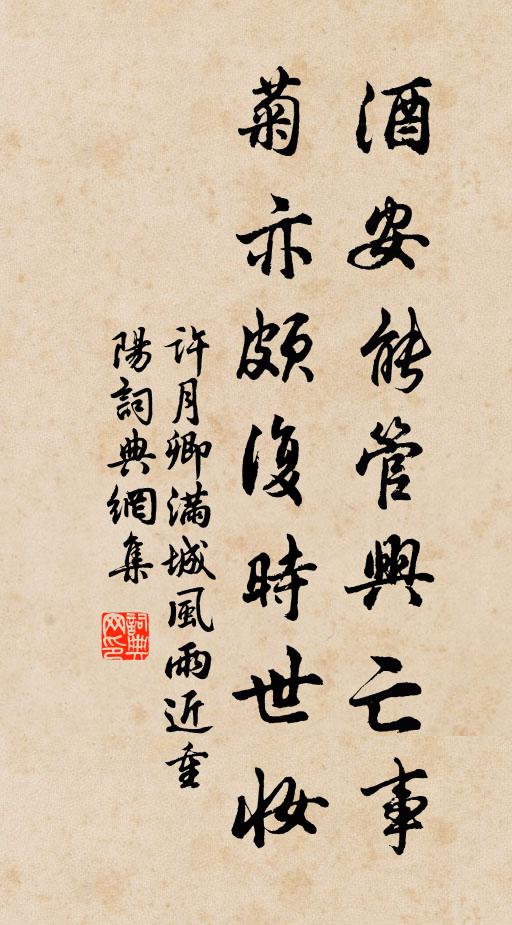 酒安能管興亡事
菊亦頗復時世妝
許月卿滿城風雨近重
陽詞典網集
詞典网印